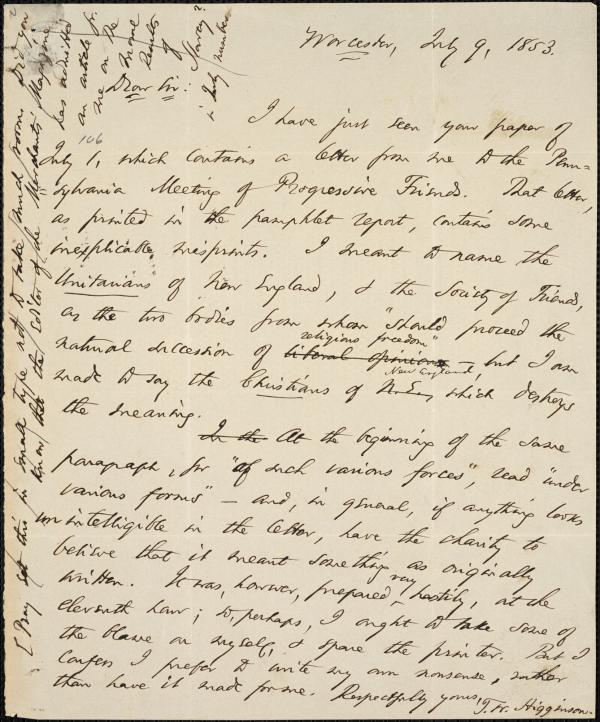 Worcester, July 9, 1853.
Dear Sir:
I have just seen your paper of
July 1, which contains a letter from me to the Penn=
sylvania Meeting of Progressive Friends. That letter,
as printed in the pamphlet report, contains some
inexplicable misprints. I meant to name the
Unitarians of New England, & the Society of Friends,
as the two bodies from whom "should proceed the
religious freedom"
natural succession of liberal opinions - but I am
New England
made to say the Christians of N.E., which destroys
the meaning.
In the At the beginning of the same
paragraph, for "of such various forces", read "under
various forms" - and, in general, if anything looks
unintelligible in the letter, have the charity to
believe that it meant something as originally
written. It was, however, prepared very hastily, at the
eleventh hour; so, perhaps, I ought to take some of
the blame on myself, & spare the printer. But I
confess I prefer to write my own nonsense, rather
than have it made for me. Respectfully yours,
T. W. Higginson.
[Pray set this in small type not to take much room. Did you
know that the Editor of the Merchants' Magazine
has admitted
an article fr.
me on the
some
Results
of
Slavery?
in July number
106